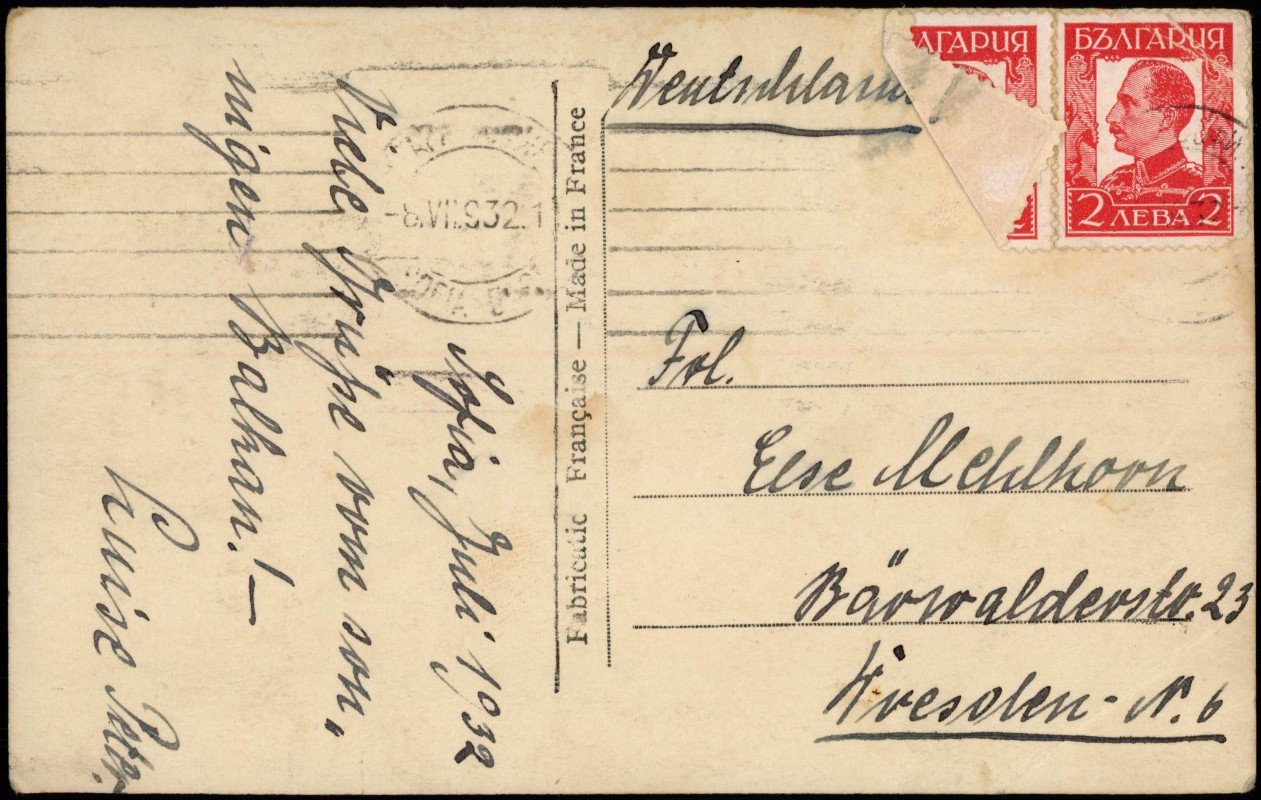 Sofia, Juli 1932
Liebe Grüße vom son,
nigen Balkan! —
Luise
-8.VII.932.1
Fabricatic Française — Made in France
Deutschland
ЛГАРИЯ
БЪЛГАРИЯ
2 ЛЕВА 2
Frl.
Else Mehlhorn
Bärwalderstr. 23
Dresden-N. 6